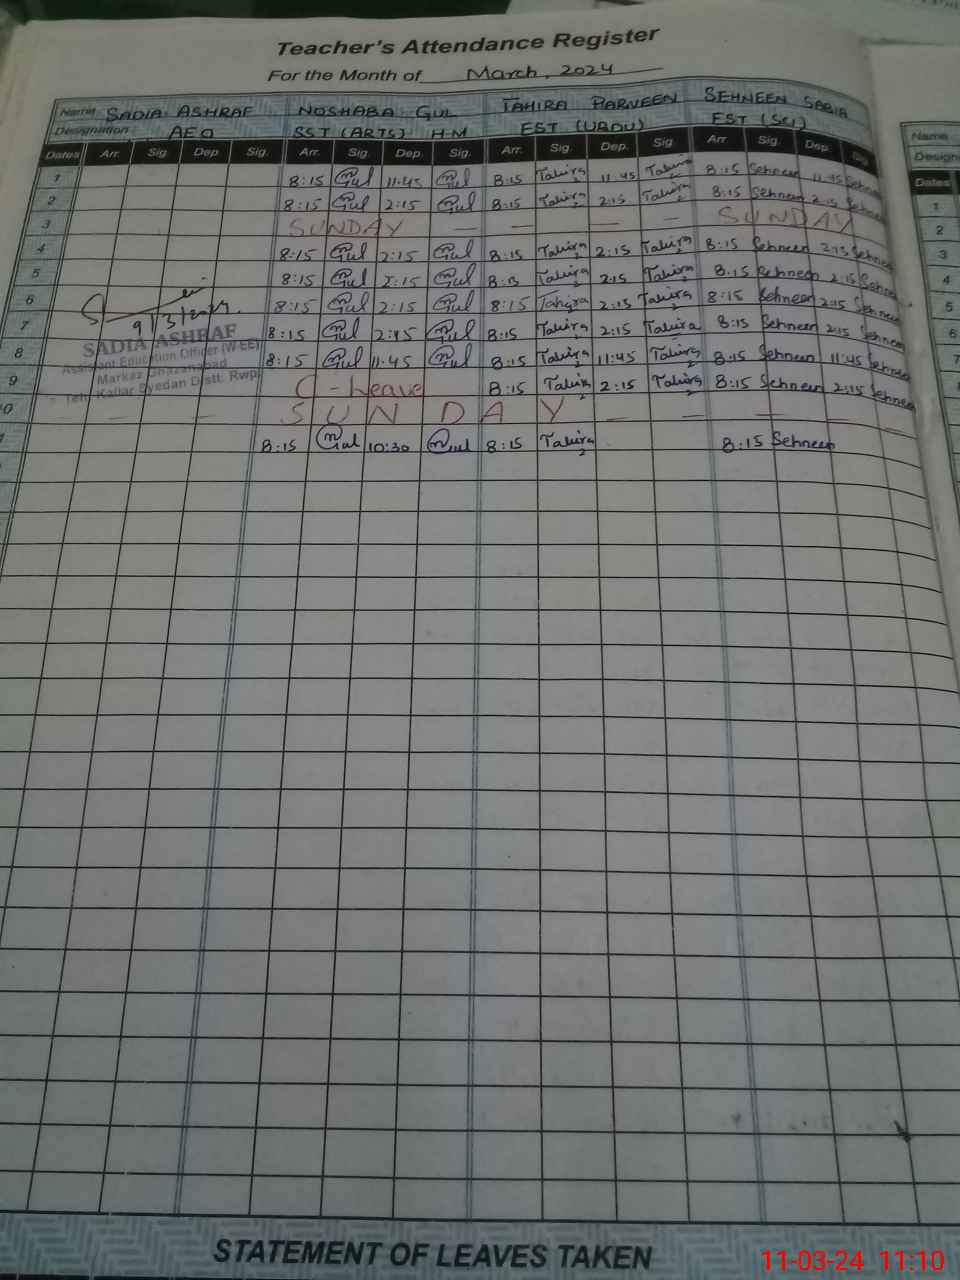 Teacher's Attendance Register
For the Month of March, 2024
Name SADIA ASHRAF NOSHABA GUL TAHIRA PARVEEN SEHNEEN SABIR
Designation AEO SST (ARTS) H.M EST (URDU) EST (SCI)
Dates Arr. Sig. Dep. Sig. Arr. Sig. Dep. Sig. Arr. Sig. Dep. Sig. Arr. Sig. Dep. Sig.
1 8:15 Gul 11:45 Gul 8:15 Tahira 11:45 Tahira 8:15 Sehneen 11:45 Sehneen
2 8:15 Gul 2:15 Gul 8:15 Tahira 2:15 Tahira 8:15 Sehneen 2:15 Sehneen
3 SUNDAY — — — — SUNDAY
4 8:15 Gul 2:15 Gul 8:15 Tahira 2:15 Tahira 8:15 Sehneen 2:15 Sehneen
5 8:15 Gul 2:15 Gul 8:15 Tahira 2:15 Tahira 8:15 Sehneen 2:15 Sehneen
6 8:15 Gul 2:15 Gul 8:15 Tahira 2:15 Tahira 8:15 Sehneen 2:15 Sehneen
7 8:15 Gul 2:45 Gul 8:15 Tahira 2:15 Tahira 8:15 Sehneen 2:15 Sehneen
8 8:15 Gul 11:45 Gul 8:15 Tahira 11:45 Tahira 8:15 Sehneen 11:45 Sehneen
9 C-Leave 8:15 Tahira 2:15 Tahira 8:15 Sehneen 2:15 Sehneen
0 SUNDAY — — —
8:15 Gul 10:30 Gul 8:15 Tahira 8:15 Sehneen
9/3/2024
SADIA ASHRAF
Assistant Education Officer (W-EE)
Markaz Ghazanabad
Teh: Kallar Syedan Distt: Rwp
Name
Design
Dates
1
2
3
4
5
6
7
STATEMENT OF LEAVES TAKEN
11-03-24 11:10